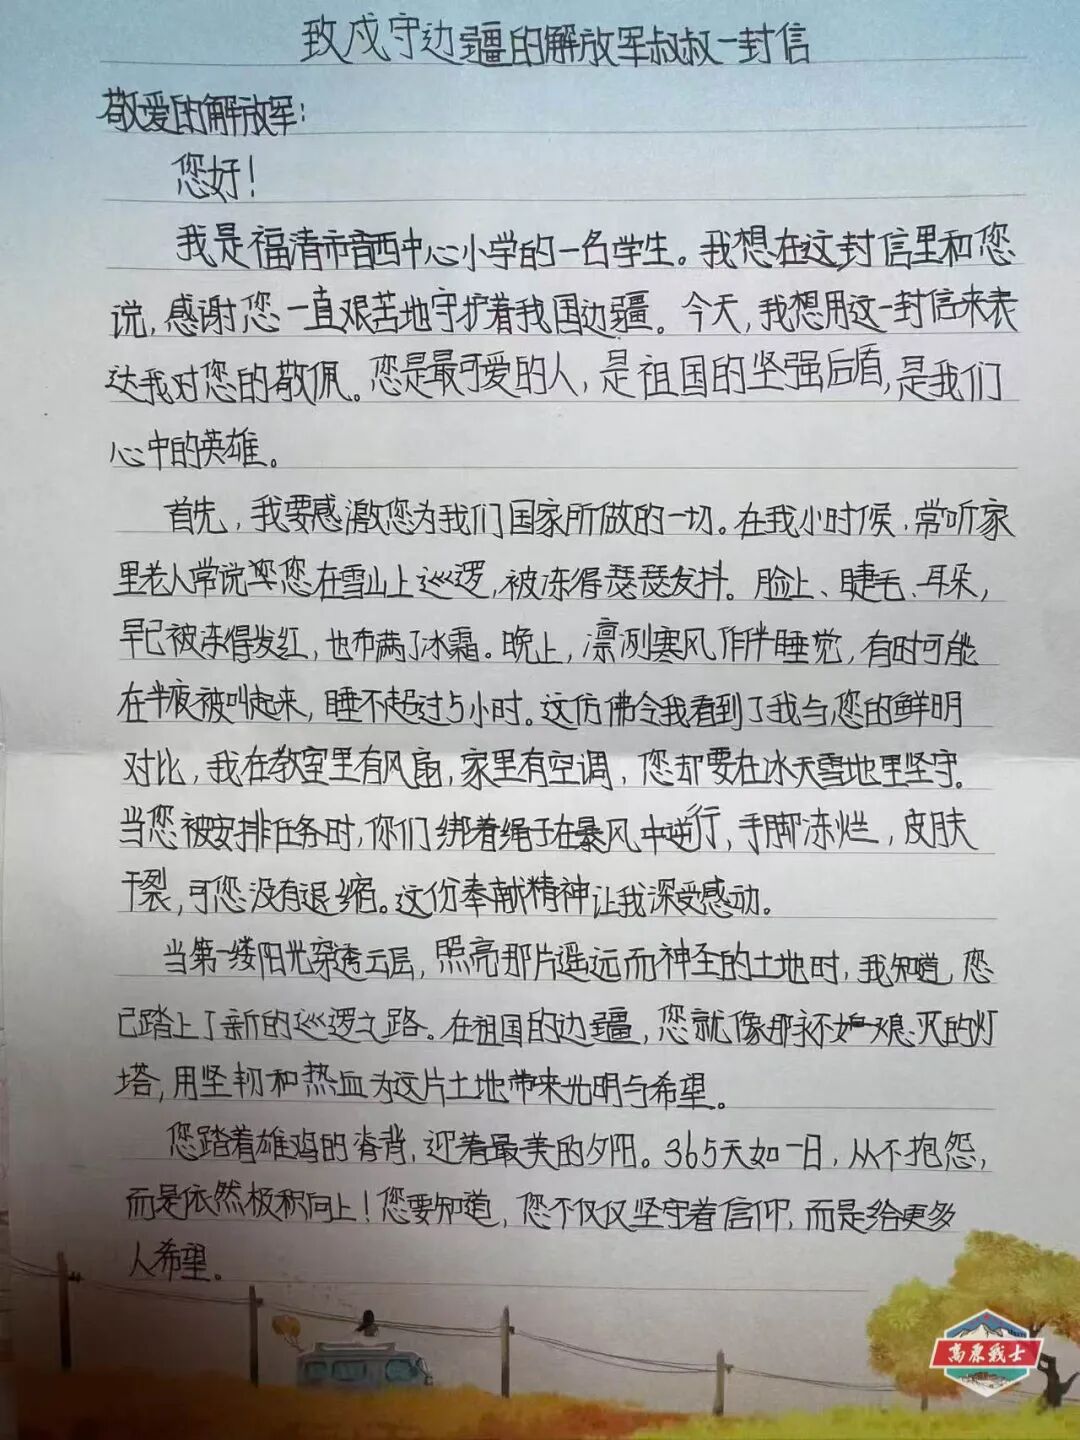 致戍守边疆的解放军叔叔一封信
敬爱的解放军：
您好！
我是福清市音西中心小学的一名学生。我想在这封信里和您
说，感谢您一直艰苦地守护着我国边疆。今天，我想用这一封信来表
达我对您的敬佩。您是最可爱的人，是祖国的坚强后盾，是我们
心中的英雄。
首先，我要感激您为我们国家所做的一切。在我小时候，常听家
里老人常说您在雪山上巡逻，被冻得瑟瑟发抖。脸上、睫毛、耳朵，
早已被冻得发红，也布满了冰霜。晚上，凛冽寒风作伴睡觉，有时可能
在半夜被叫起来，睡不超过5小时。这仿佛令我看到了我与您的鲜明
对比，我在教室里有风扇，家里有空调，您却要在冰天雪地里坚守。
当您被安排任务时，你们绑着绳子在暴风中逆行，手脚冻烂，皮肤
干裂，可您没有退缩。这份奉献精神让我深受感动。
当第一缕阳光穿透云层，照亮那片遥远而神圣的土地时，我知道，您
已踏上了新的巡逻之路。在祖国的边疆，您就像那永不熄灭的灯
塔，用坚韧和热血为这片土地带来光明与希望。
您踏着雄鸡的脊背，迎着最美的夕阳。365天如一日，从不抱怨，
而是依然极积向上！您要知道，您不仅仅坚守着信仰，而是给更多
人希望。
高原戰士